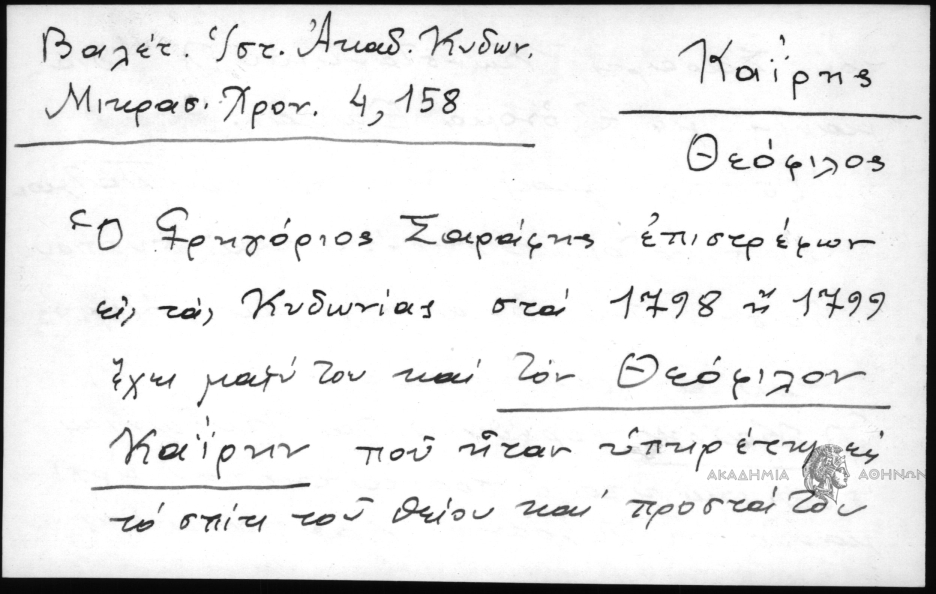 Βαλέτ. Ἱστ. Ἀκαδ. Κυδων.
Μικρασ. Χρον. 4, 158
Καΐρης
Θεόφιλος
Ὁ Γρηγόριος Σαράφης ἐπιστρέφων
εἰς τάς Κυδωνίας στά 1798 ἤ 1799
ἔχει μαζύ του καί τόν Θεόφιλον
Καΐρην πού ἦταν ὑπηρέτης εἰς
τό σπίτι τοῦ θείου καί προστάτου
ΑΚΑΔΗΜΙΑ ΑΘΗΝΩΝ